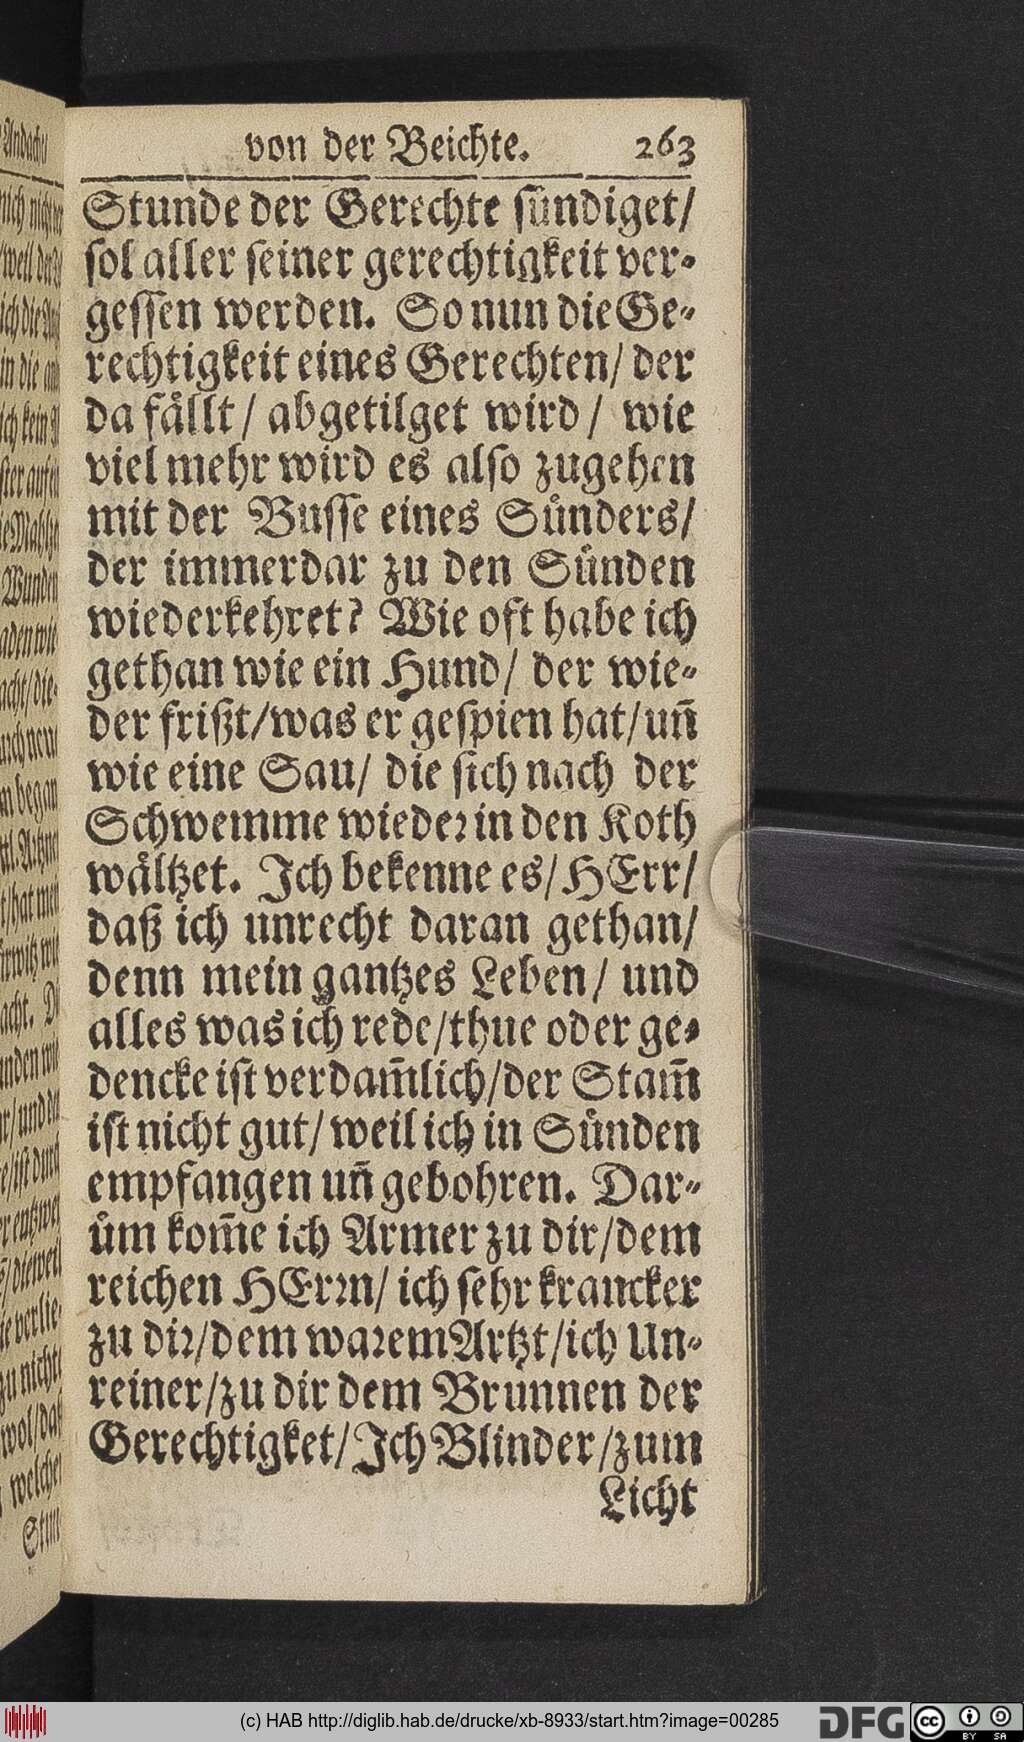 von der Beichte. 263
Stunde der Gerechte sündiget/
sol aller seiner gerechtigkeit ver-
gessen werden. So nun die Ge-
rechtigkeit eines Gerechten/ der
da fållt/ abgetilget wird/ wie
viel mehr wird es also zugehen
mit der Busse eines Sůnders/
der immerdar zu den Sůnden
wiederkehret? Wie oft habe ich
gethan wie ein Hund/ der wie-
der frißt/was er gespien hat/un̄
wie eine Sau/ die sich nach der
Schwemme wieder in den Koth
wåltzet. Ich bekenne es/ HErr/
daß ich unrecht daran gethan/
denn mein gantzes Leben/ und
alles was ich rede/thue oder ge-
dencke ist verdam̄lich/der Stam̄
ist nicht gut/ weil ich in Sůnden
empfangen un̄ gebohren. Dar-
ům kom̄e ich Armer zu dir/dem
reichen HErrn/ ich sehr krancker
zu dir/dem warem Artzt/ich Un-
reiner/zu dir dem Brunnen der
Gerechtigket/Ich Blinder/zum
Licht
(c) HAB http://diglib.hab.de/drucke/xb-8933/start.htm?image=00285
DFG
cc BY SA